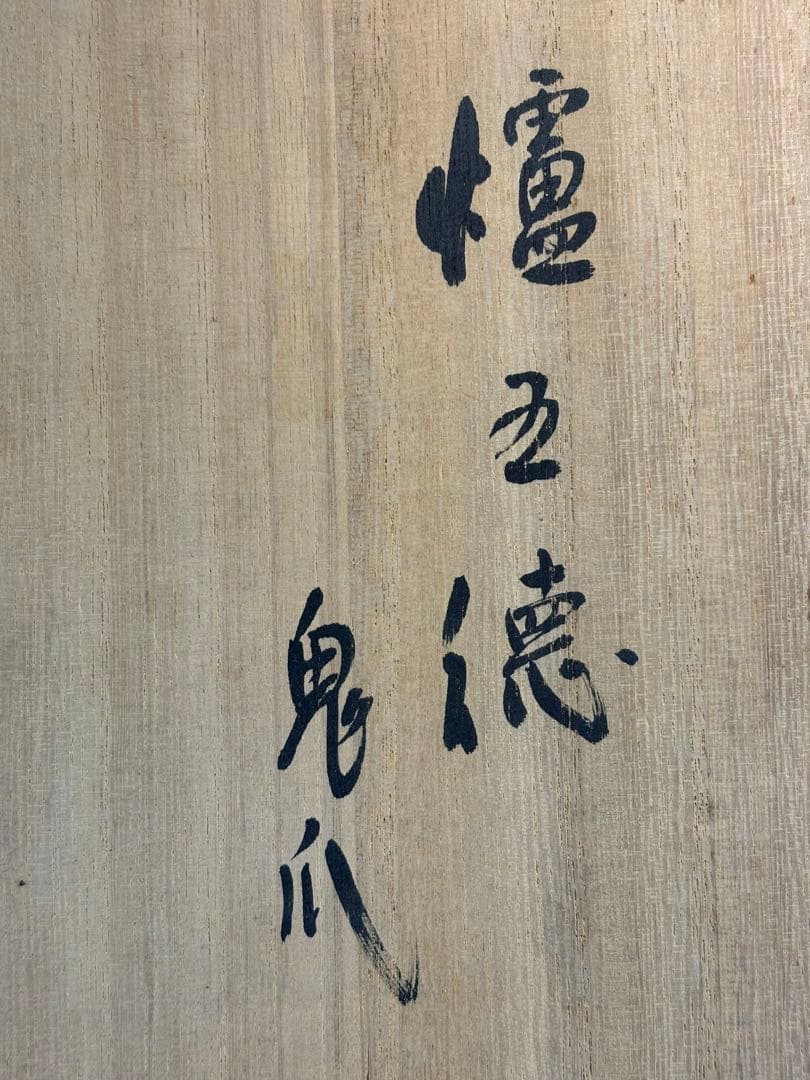 爐五德
鬼爪